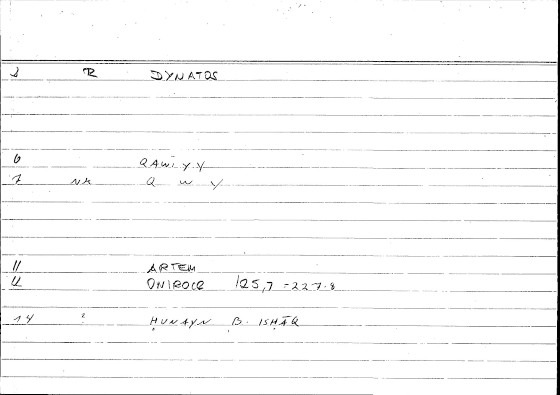 3 R DYNATOS
6 QAWĪYY
7 NA Q W Y
11 ARTEM
12 ONIROCR 125,7 = 227.8
14 2 ḤUNAYN B. ISḤĀQ